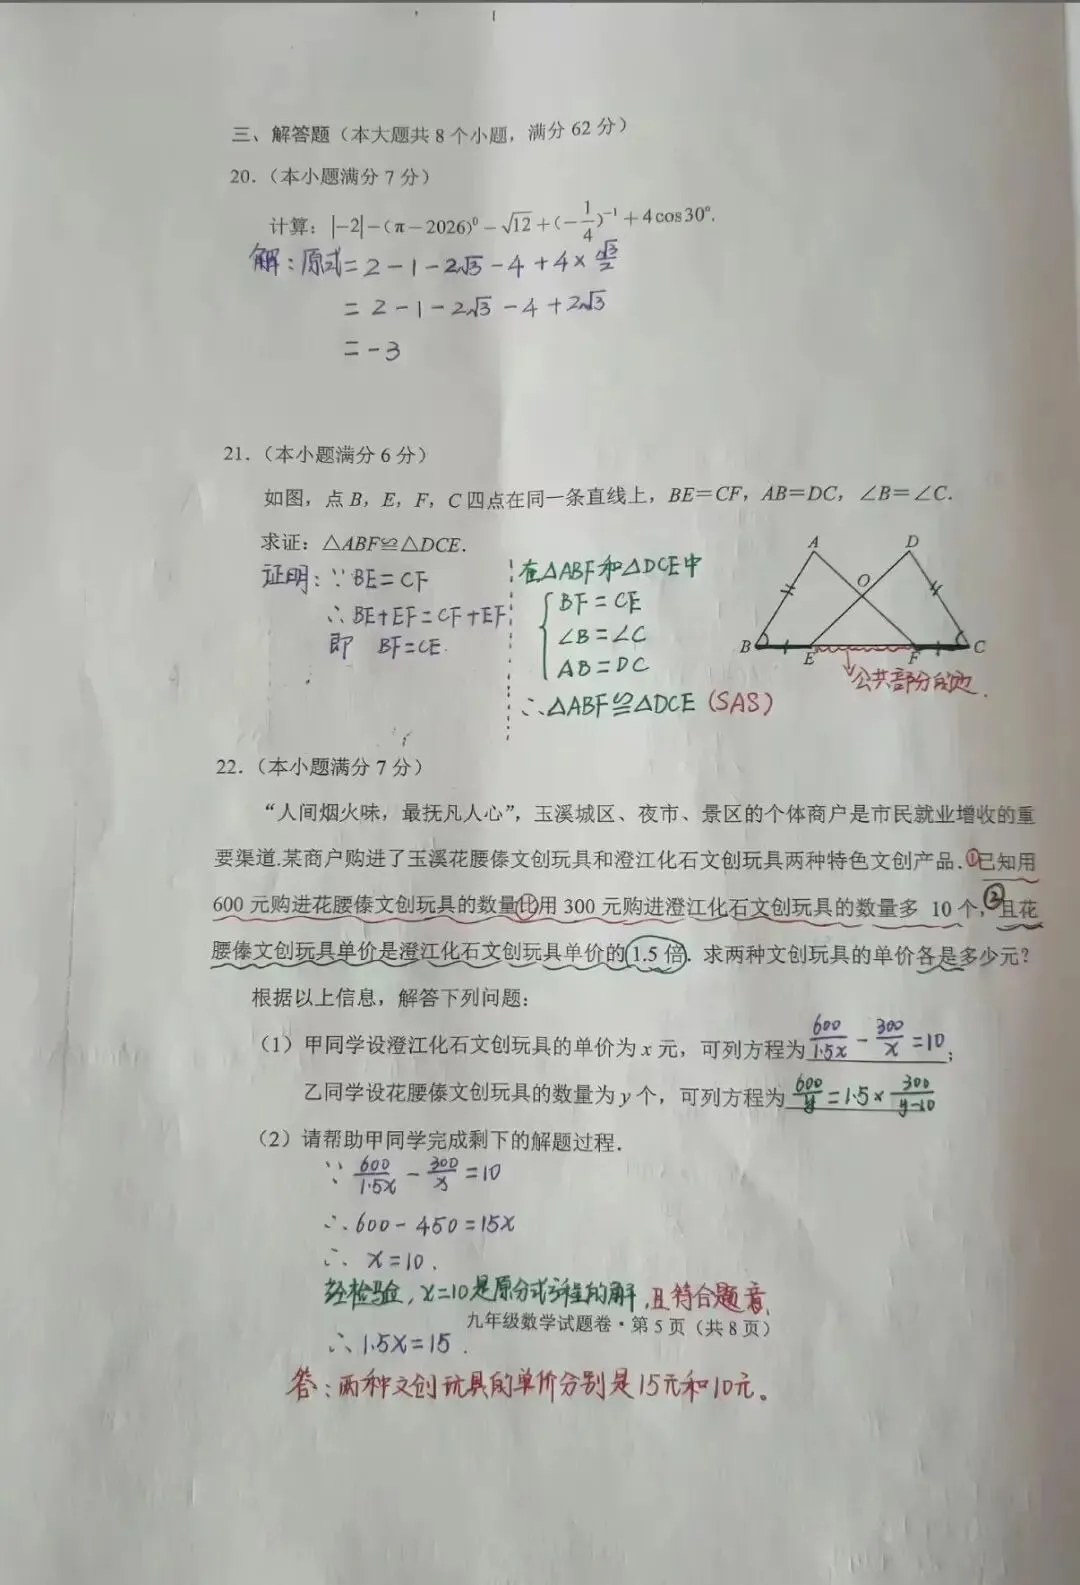 三、解答题（本大题共 8 个小题，满分 62 分）
20.（本小题满分 7 分）
计算：|−2|−(π−2026)⁰−√12+(−1/4)⁻¹+4cos30°.
解：原式=2-1-2√3-4+4×√3/2
=2-1-2√3-4+2√3
=-3
21.（本小题满分 6 分）
如图，点 B，E，F，C 四点在同一条直线上，BE=CF，AB=DC，∠B=∠C.
求证：△ABF≌△DCE.
证明：∵BE=CF
∴BE+EF=CF+EF
即 BF=CE.
在△ABF和△DCE中
BF=CE
∠B=∠C
AB=DC
∴△ABF≌△DCE (SAS)
A D
O
B E F C
公共部分的边.
22.（本小题满分 7 分）
“人间烟火味，最抚凡人心”，玉溪城区、夜市、景区的个体商户是市民就业增收的重
要渠道.某商户购进了玉溪花腰傣文创玩具和澄江化石文创玩具两种特色文创产品.①已知用
600 元购进花腰傣文创玩具的数量比用 300 元购进澄江化石文创玩具的数量多 10 个，②且花
腰傣文创玩具单价是澄江化石文创玩具单价的 1.5 倍. 求两种文创玩具的单价各是多少元？
根据以上信息，解答下列问题：
（1）甲同学设澄江化石文创玩具的单价为 x 元，可列方程为 600/1.5x - 300/x =10；
乙同学设花腰傣文创玩具的数量为 y 个，可列方程为 600/y =1.5× 300/y-10
（2）请帮助甲同学完成剩下的解题过程.
∵ 600/1.5x - 300/x =10
∴600-450=15x
∴ x=10.
经检验，x=10是原分式方程的解，且符合题意，
九年级数学试题卷·第 5 页（共 8 页）
∴1.5x=15.
答：两种文创玩具的单价分别是15元和10元。